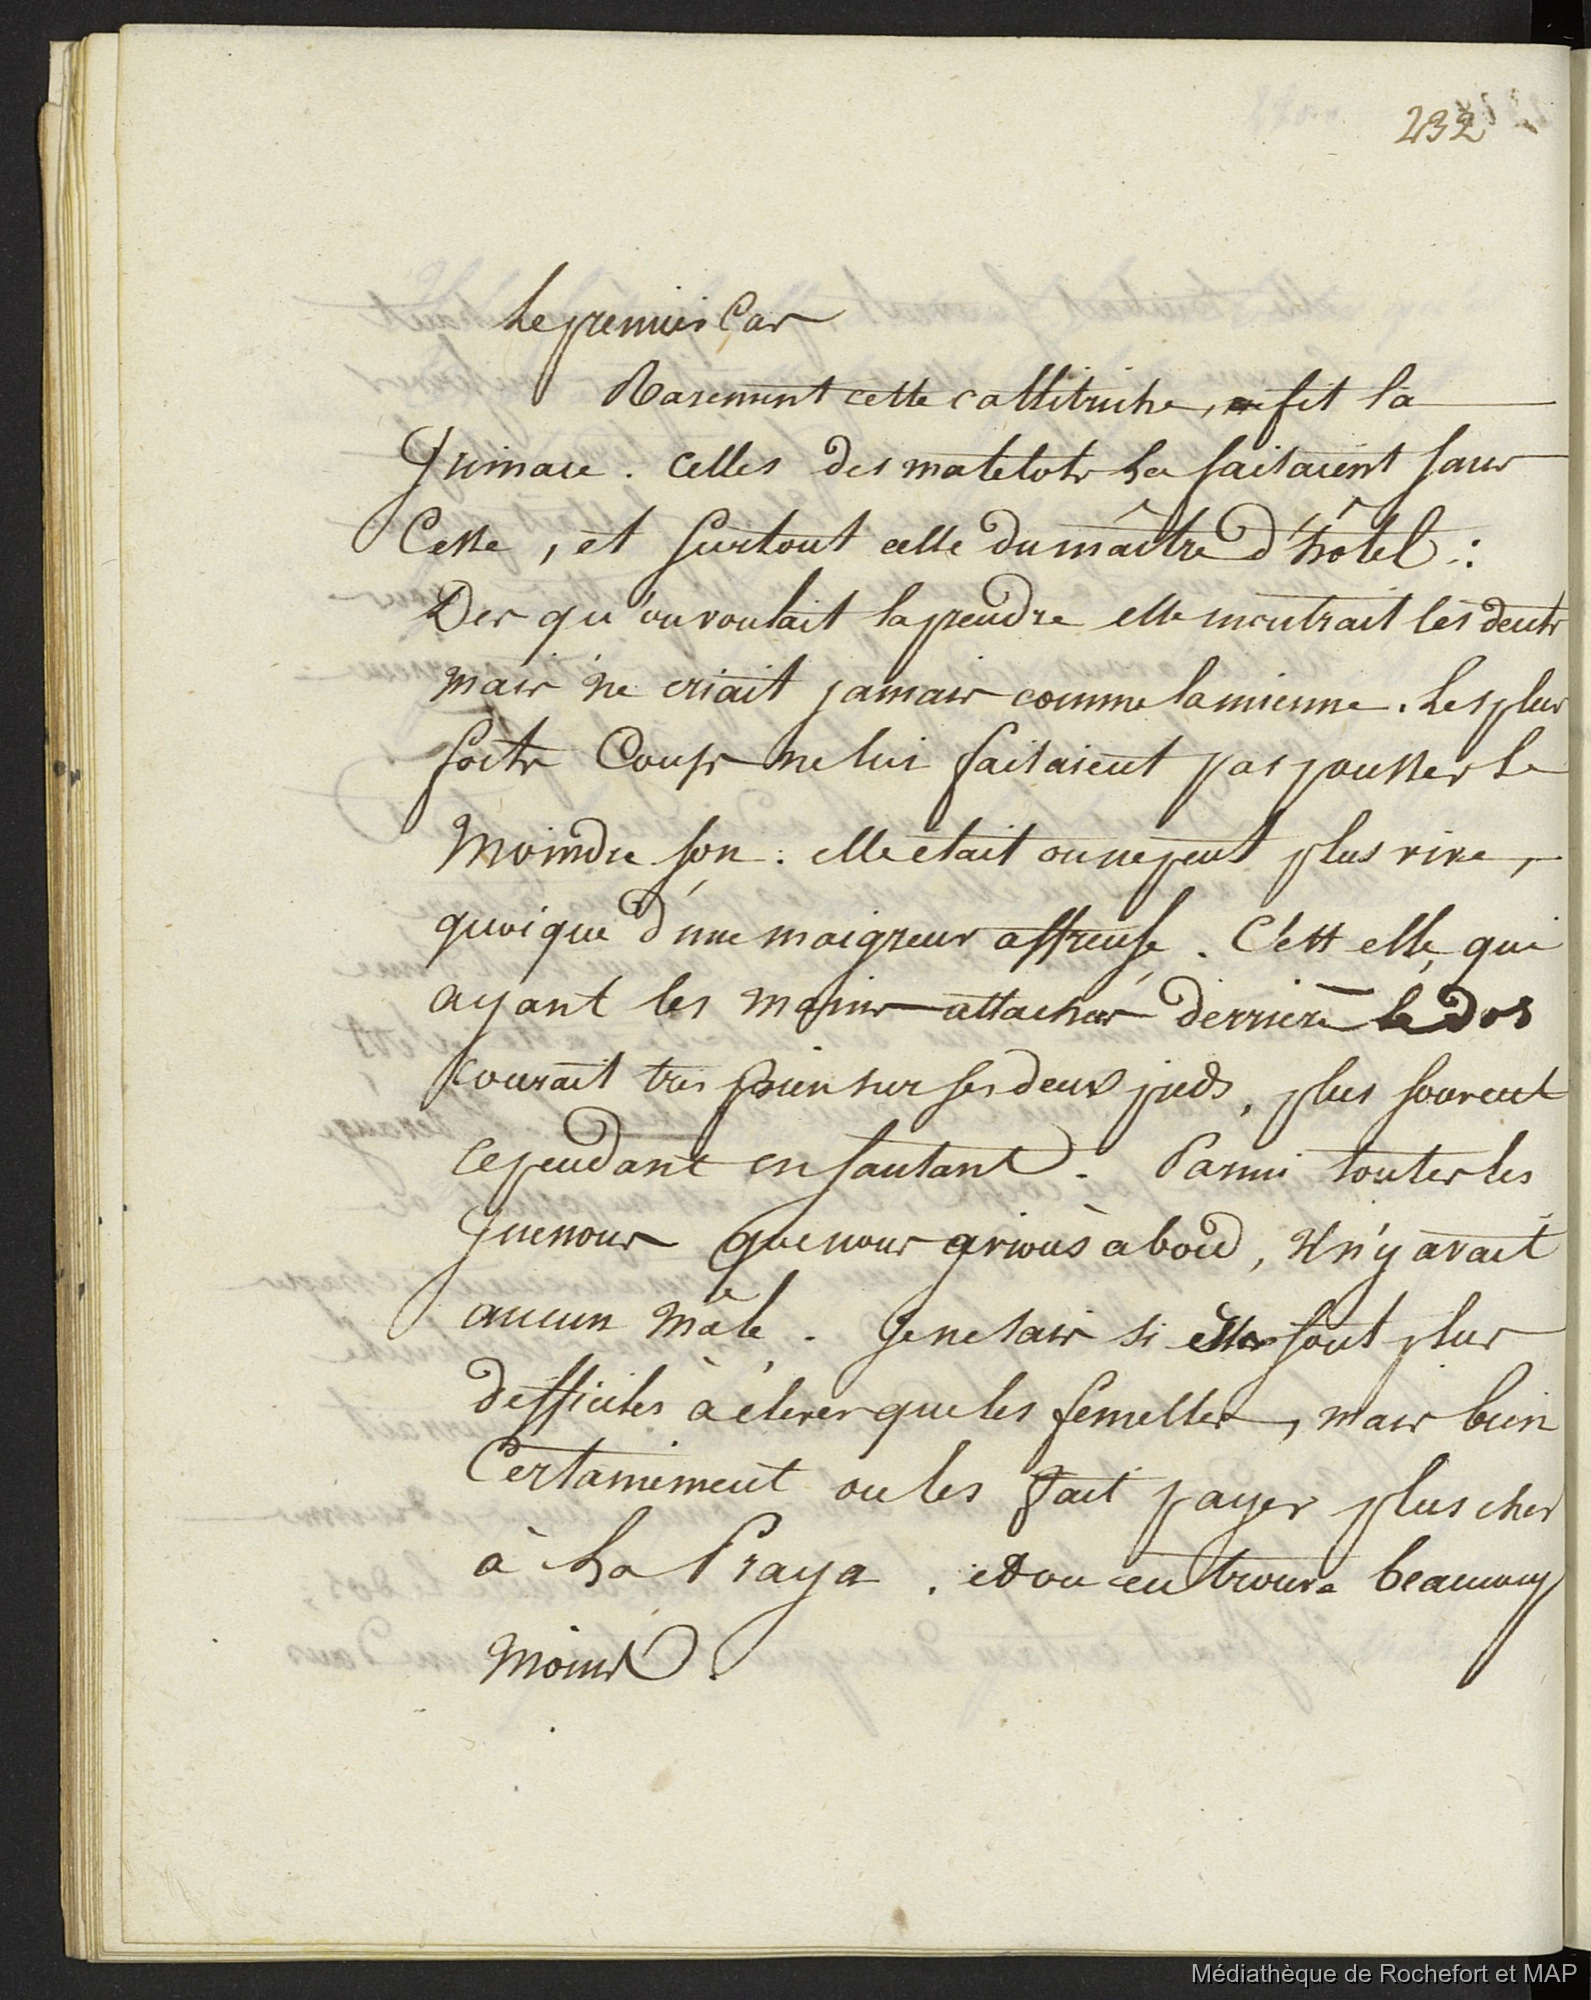 232
le premier Cas
Rarement cette callitriche, fit la
Grimace. celles des matelots la faisaient sans
Cesse, et surtout celle du maître d'hôtel :
Des qu'on voulait la prendre elle montrait les dents
mais ne criait jamais comme la mienne. les plus
forts Coups ne lui faisaient pas pousser le
moindre son : elle était on ne peut plus vive,
quoique d'une maigreur affreuse. C'est elle, qui
ayant les mains attachées derrière le dos
courait très bien sur ses deux pieds, plus souvent
cependant en sautant. Parmi toutes les
guenons que nous avions à bord, il n'y avait
aucun mâle. Je ne sais si elles sont plus
difficiles à élever que les femelles, mais bien
Certainement on les fait payer plus cher
à La Praya. et on en trouve beaucoup
moins.
Médiathèque de Rochefort et MAP